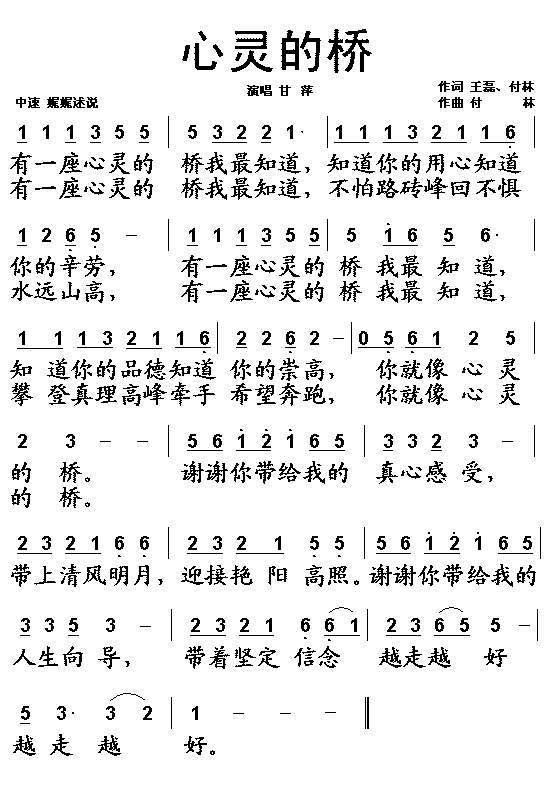 心灵的桥
演唱 甘 萍
作词 王磊、付林
中速 娓娓述说
作曲 付 林
1 1 1 3 5 5 | 5 3 2 2 1· | 1 1 1 3 2 1 1 6
有一座心灵的 桥我最知道, 知道你的用心知道
有一座心灵的 桥我最知道, 不怕路砖峰回不惧
1 2 6 5 – | 1 1 1 3 5 5 | 5 1 6 5 6·
你的辛劳, 有一座心灵的 桥 我最 知 道,
水远山高, 有一座心灵的 桥 我最 知 道,
1 1 1 3 2 1 1 6 | 2 2 6 2 – | 0 5 6 1 2 5
知 道你的品德知道 你的崇高, 你就像 心 灵
攀 登真理高峰牵手 希望奔跑, 你就像 心 灵
2 3 – – | 5 6 1 2 1 6 5 | 3 3 2 3 –
的 桥。 谢谢你带给我的 真心感 受,
的 桥。
2 3 2 1 6 6 | 2 3 2 1 5 5 | 5 6 1 2 1 6 5
带上清风明月, 迎接艳 阳 高照。谢谢你带给我的
3 3 5 3 – | 2 3 2 1 6 6 1 | 2 3 6 5 5
人生向 导, 带着坚定 信念 越走越 好
5 3· 3 2 | 1 – – ‖
越 走 越 好。